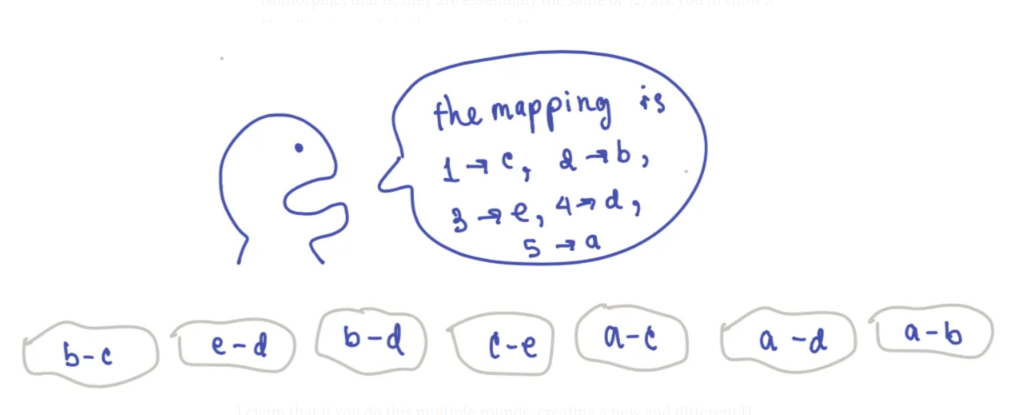 isomorphic, that is, they are essentially the same or (2) ask you to show a
the mapping is
1 → c, 2 → b,
3 → e, 4 → d,
5 → a
b-c e-d b-d c-e a-c a-d a-b
I claim that if you do this multiple rounds, creating a new and different H